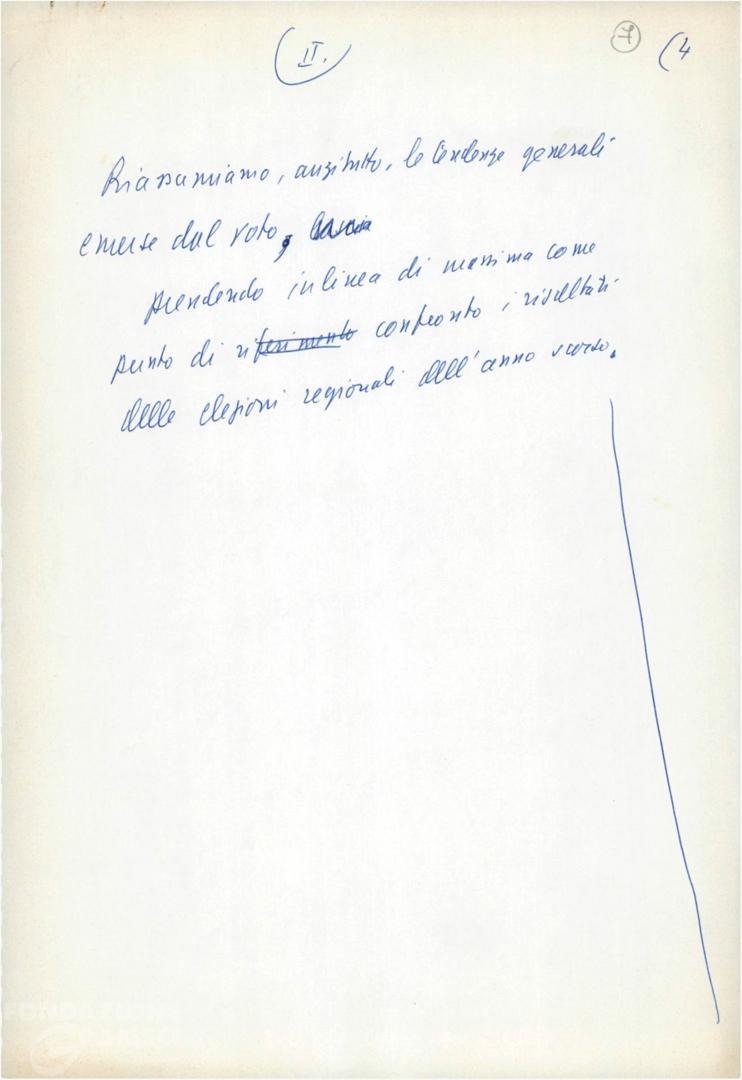 II.
7
(4
Riassumiamo, anzitutto, le tendenze generali
emerse dal voto,
prendendo in linea di massima come
punto di riferimento confronto i risultati
delle elezioni regionali dell'anno scorso.
FONDAZIONE